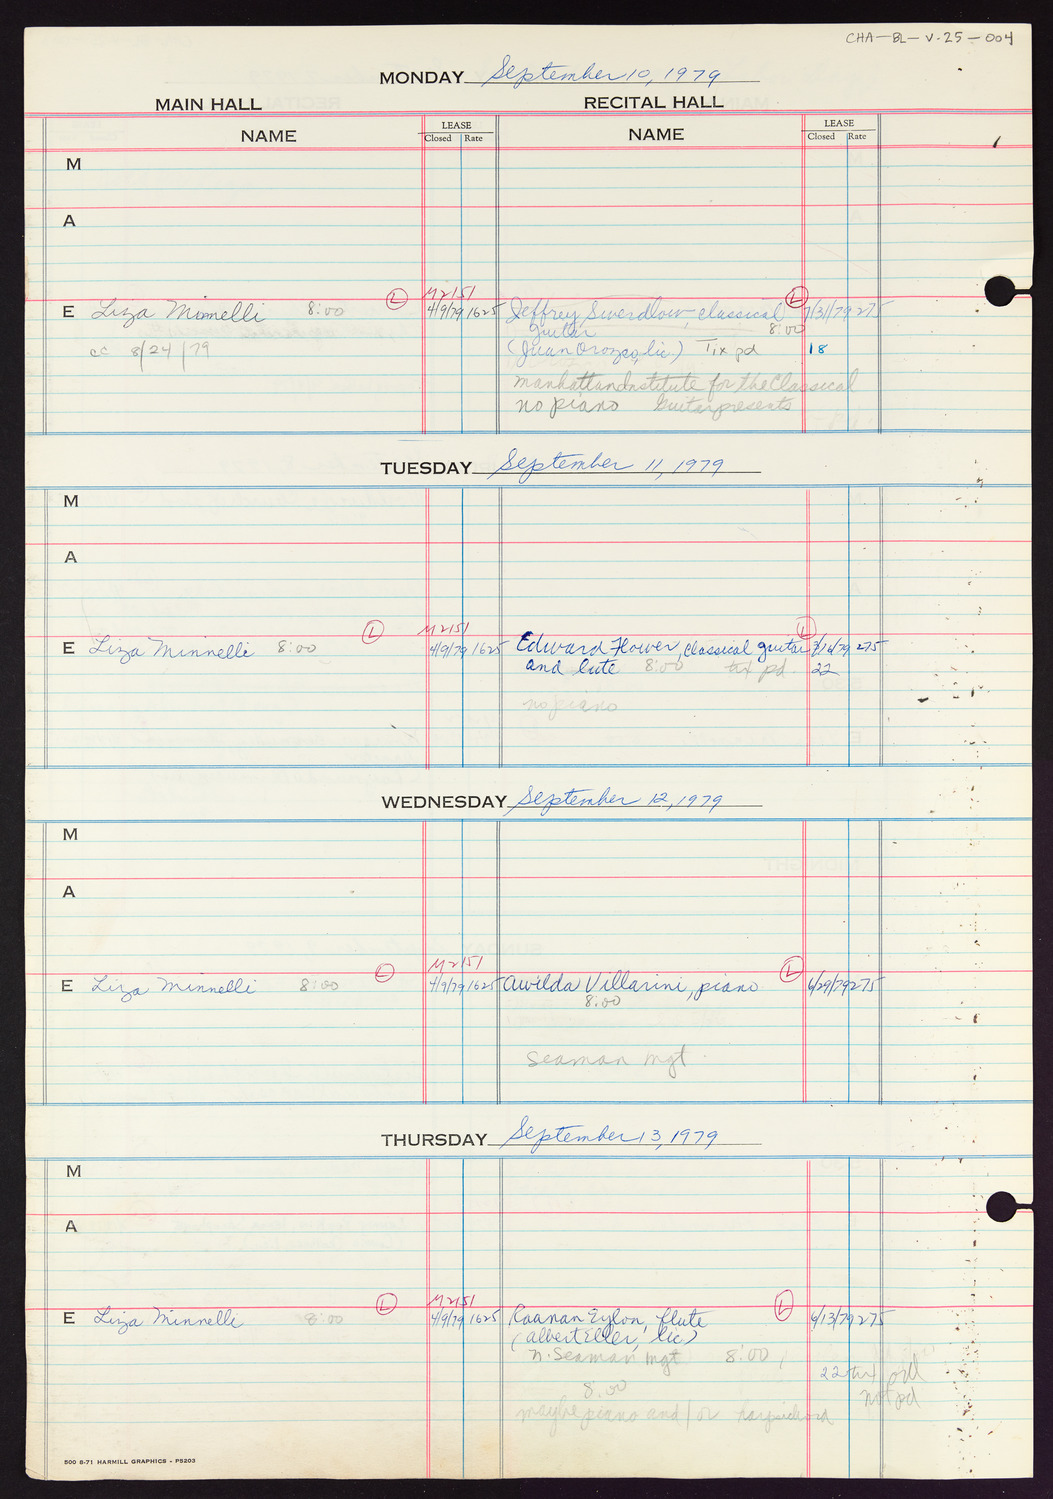 CHA-BL-V.25-004
MONDAY September 10, 1979
MAIN HALL RECITAL HALL
NAME LEASE Closed Rate NAME LEASE Closed Rate
M
A
M2151
E Liza Minnelli 8:00 L 4/9/79 1625 Jeffrey Swerdlow classical L 7/31/79 275
guitar 8:00
cc 8/24/79 (Juan Orozco, lic) Tix pd 18
Manhattan Institute for the Classical
no piano Guitar presents
TUESDAY September 11, 1979
M
A
M2151
E Liza Minnelli 8:00 L 4/9/79 1625 Edward Flower, classical guitar L 3/16/79 275
and lute 8:00 tix pd. 22
no piano
WEDNESDAY September 12, 1979
M
A
M2151
E Liza Minnelli 8:00 L 4/9/79 1625 Awilda Villarini, piano L 6/29/79 275
8:00
Seaman mgt
THURSDAY September 13, 1979
M
A
M2151
E Liza Minnelli 8:00 L 4/9/79 1625 Raanan Eylon, flute L 6/13/79 275
(Albert Eller, lic)
N. Seaman mgt 8:00
22 tix pd
8:00 not pd
maybe piano and/or harpsichord
500 8-71 HARMILL GRAPHICS - P5203